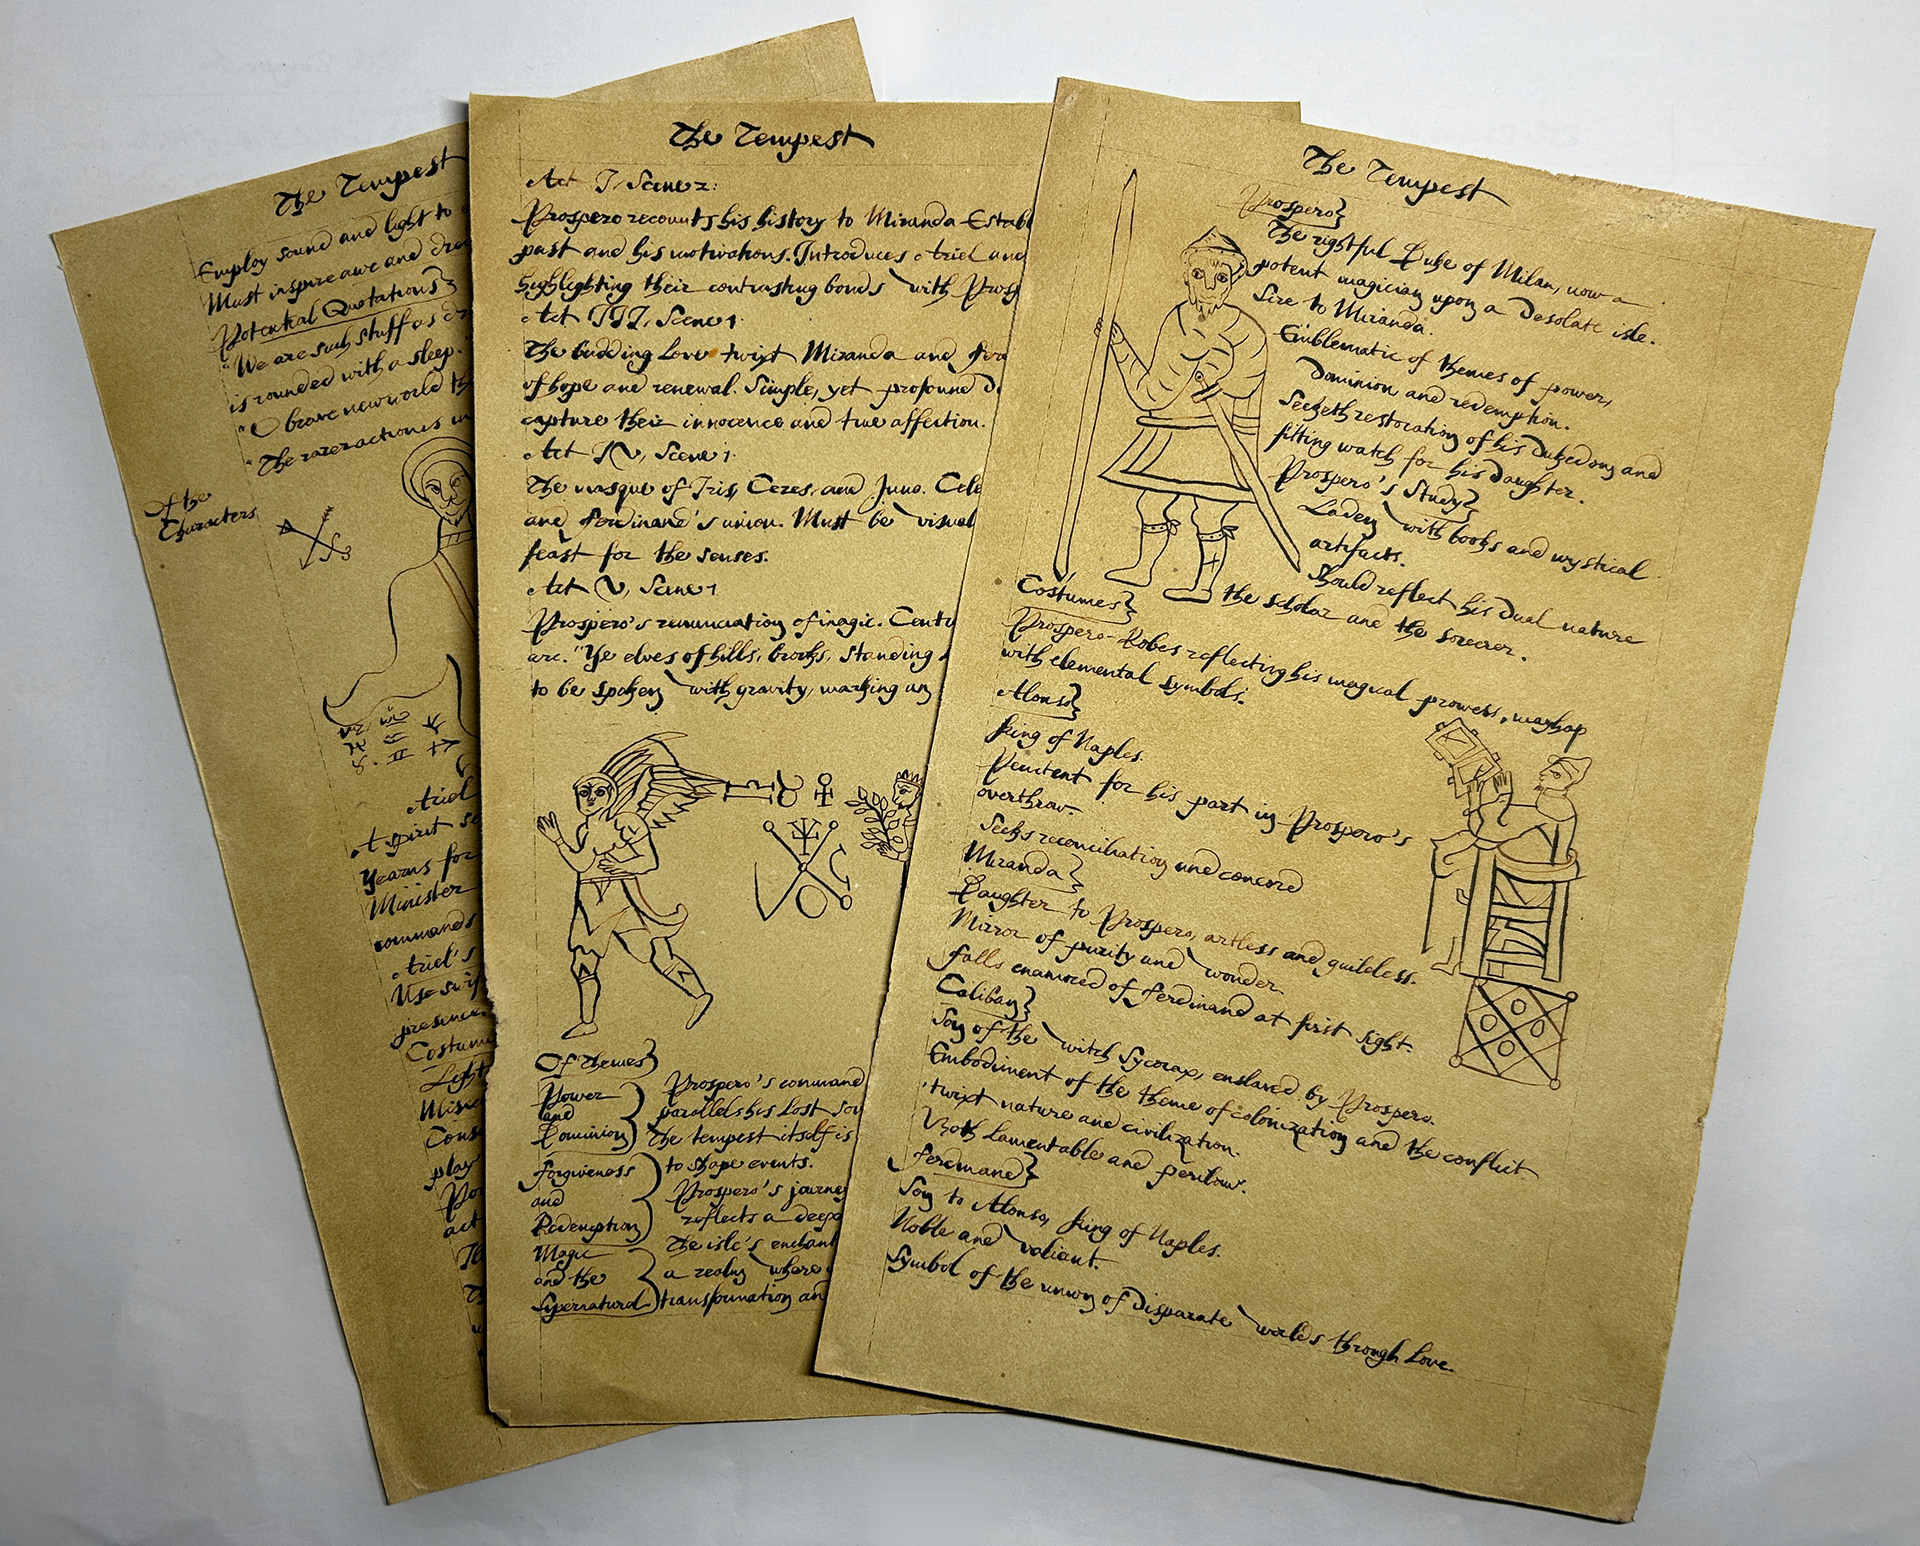 The Tempest
Employ sound and light to
Must inspire awe and
Potential Quotations}
"We are such stuff as
is rounded with a sleep.
"O brave new world
"The rarer action is in
Of the
Characters
Ariel
A spirit
Yearns for
Minister
commands
Ariel's
Use
presence.
Light
play
act
The Tempest
Act I, Scene 2:
Prospero recounts his history to Miranda Estab
past and his motivations. Introduces Ariel and
highlighting their contrasting bonds with Prosp
Act III, Scene 1:
The budding Love twixt Miranda and Fer
of hope and renewal. Simple, yet profound d
capture their innocence and true affection.
Act IV, Scene 1:
The masque of Iris, Ceres, and Juno. Cele
and Ferdinand's union. Must be visual
feast for the senses.
Act V, Scene 1
Prospero's renunciation of magic. Centr
arc. "Ye elves of hills, brooks, standing
to be spoken with gravity, marking an
Of Themes}
Power
and
Dominion}
Prospero's command
parallels his Lost sov
The tempest itself is
to shape events.
Forgiveness
and
Redemption}
Prospero's journe
reflects a deep
Magic
and the
Supernatural}
The isle's enchant
a realm where
transformation an
The Tempest
Prospero}
The rightful Duke of Milan, now a
potent magician upon a Desolate isle.
Sire to Miranda.
Emblematic of themes of power,
Dominion and redemption.
Seeketh restoration of his Dukedom and
fitting watch for his Daughter.
Prospero's Study}
Laden with books and mystical
artifacts.
Should reflect his Dual nature
the scholar and the sorcerer.
Costumes}
Prospero- Robes reflecting his magical prowess, mayhap
with elemental symbols.
Alonso}
King of Naples.
Penitent for his part in Prospero's
overthrow.
Seeks reconciliation and concord
Miranda}
Daughter to Prospero, artless and guileless.
Mirror of purity and wonder.
Falls enamored of Ferdinand at first sight.
Caliban}
Son of the witch Sycorax, enslaved by Prospero.
Embodiment of the theme of colonization and the conflict
'twixt nature and civilization.
Both Lamentable and perilous.
Ferdinand}
Son to Alonso, King of Naples.
Noble and valiant.
Symbol of the union of Disparate worlds through Love.